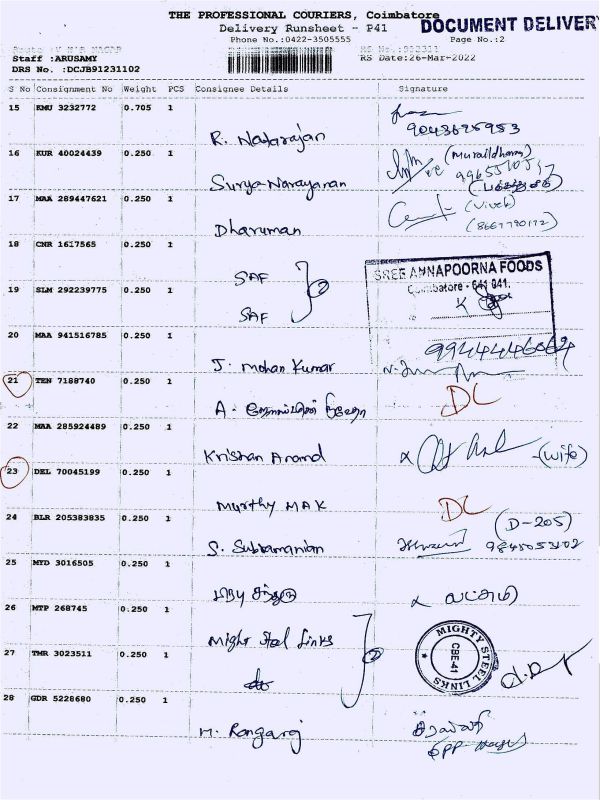 THE PROFESSIONAL COURIERS, Coimbatore
DOCUMENT DELIVERY
Delivery Runsheet - P41
Phone No.:0422-3505555
Page No.:2
Staff :ARUSAMY
RS Date:26-Mar-2022
DRS No. :DCJB91231102
S No Consignment No Weight PCS Consignee Details Signature
15 KMU 3232772 0.705 1
R. Natarajan
9043626953
16 KUR 40024439 0.250 1
Surya Narayanan
(Muralidharan)
17 MAA 289447621 0.250 1
Dharuman
(Vivek)
(8667790172)
18 CNR 1617565 0.250 1
SAF
SREE ANNAPOORNA FOODS
Coimbatore - 641 041.
19 SLM 292239775 0.250 1
SAF
20 MAA 941516785 0.250 1
J. Mohan Kumar
21 TEN 7188740 0.250 1
A.
DC
22 MAA 285924489 0.250 1
Krishan Anand
(wife)
23 DEL 70045199 0.250 1
Murthy MAK
DC
24 BLR 205383835 0.250 1
S. Subramanian
(D-205)
9845053102
25 MYD 3016505 0.250 1
லட்சுமி
26 MTP 268745 0.250 1
Might Steel Links
MIGHTY STEEL LINKS
CBE 41
27 TMR 3023511 0.250 1
do
28 GDR 5228680 0.250 1
M. Rangaraj